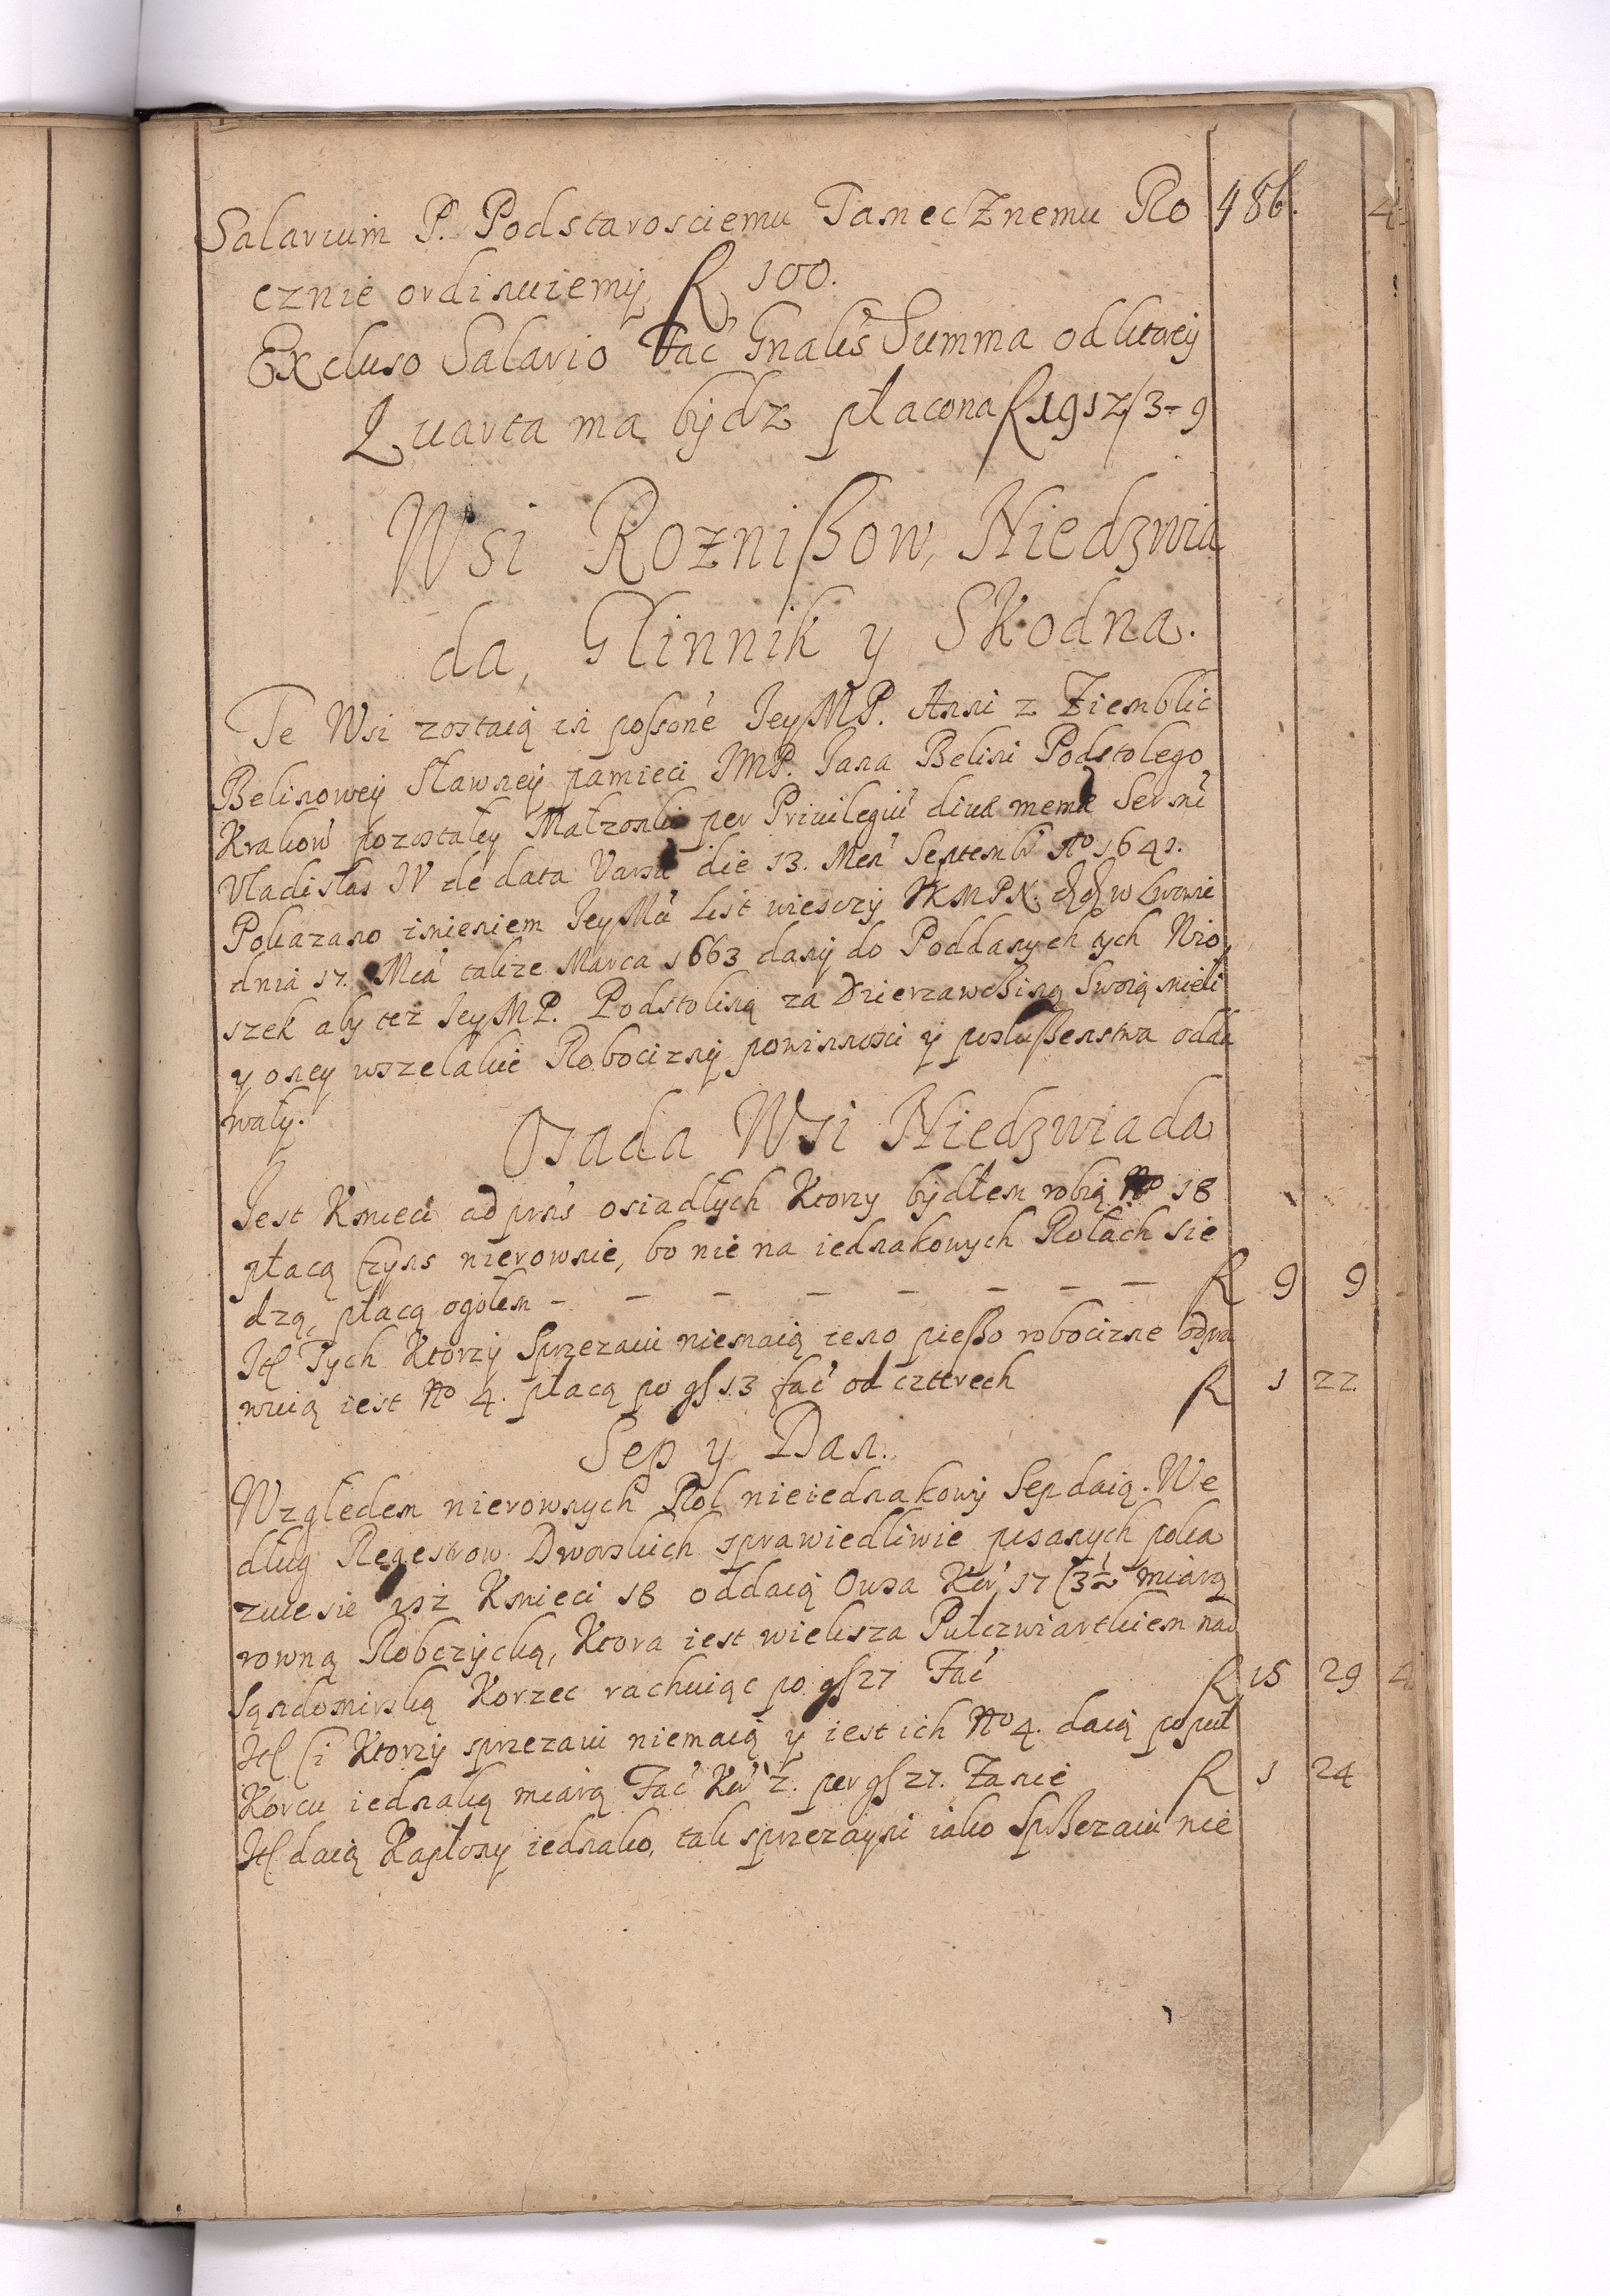 Salarium P. Podstarosciemu Tanecznemu Ro 486.
cznie ordinuiemÿ fl 100.
Excluso Salario Fac̃ Gnalis Summa od ktorey
Quarta ma bÿdz płacona fl 1912/3-9
Wsi Roznißow, Niedzwia
da, Glinnik y Skodna.
Te Wsi zostaią in possone JeyMP. Anni z Ziemblic
Belinowey sławney pamieci JMP. Jana Belini Podstolego
Krakow pozostałey Małzonki per Privilegiũ divæ memæ Sernĩ
Vladislai IV de data Varsã die 13. Men Septemb̃ Ao 1641.
Pokazano imieniem JeyMci List wiesczy JKMPN. w Lwowie
dnia 17. Mcã takze Marca 1663 dany do Poddanych tych Wio
szek aby tez JeyMP. Podstoliną za Dzierzawczиną Swoią mieli
y oney wszelakie Robocizny powinnosci y poslußenstwa odda
wały.
Osada Wsi Niedzwiada
Jest Kmieci ad prns osiadłych Ktorzy bydłem robią No 18
płacą czyns nierownie, bo nie na iednakowych Rolach sie
dzą, płacą ogołem - - - - - - - - fl 9 9
Itł Tych Ktorzy Sprzezaiu niemaią ieno pießo robocizne odpra
wuią iest No 4. płacą po gſ 13 fac̃ od czterech fl 1 22
Sep y Dan.
Względem nierownych Rol nieiednakowy Sep daią. We
dług Regestrow Dworskich sprawiedliwie pisanych poka
zuie sie isz Kmieci 18 oddaią Owsa Kor 17 (3½ miarą
rowną Robczycką, Ktora iest wieksza Pułczwiartkiem nad
Sąndomirską Korzec rachuiąc po gſ 27 Fac̃ fl 15 29 4
Itł Ci Ktorzy sprzezaiu niemaią y iest ich No 4. daią po puł
Korcu iednaką miarą Fac̃ Kor 2. per gſ 27. Zanie fl 1 24
Itł daią Kapłony iednako, tak sprzezayni iako Spßezaiu nie